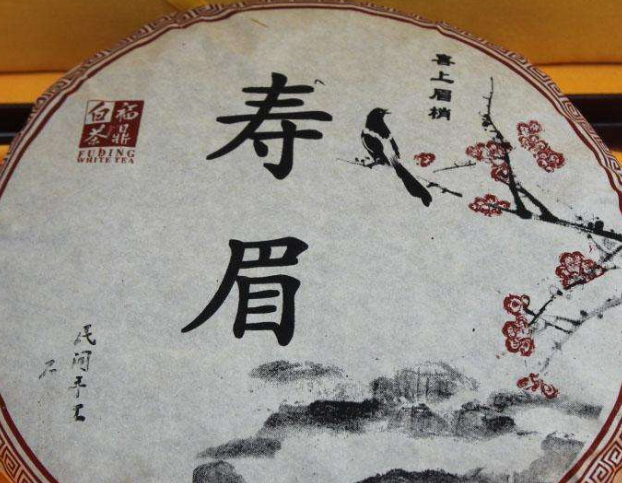 喜上眉梢
寿眉
福鼎
白茶
FUDING
WHITE TEA
民间手工